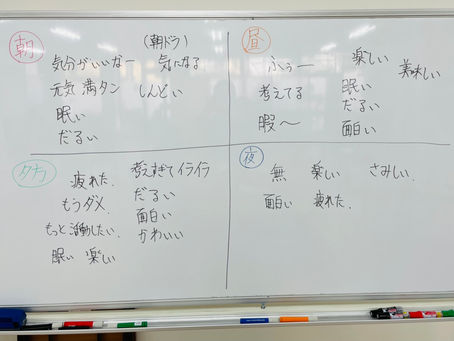 朝
(朝ドラ)
気分がいいなー 気になる
元気満タン しんどい
眠い
だるい
昼
ふぅー 楽しい 美味しい
考えてる 眠い
だるい
暇〜 面白い
夕方
疲れた. 考えすぎてイライラ
もうダメ. だるい
もっと活動したい. 面白い
かわいい
眠い 楽しい
夜
無 楽しい さみしい.
面白い 疲れた.